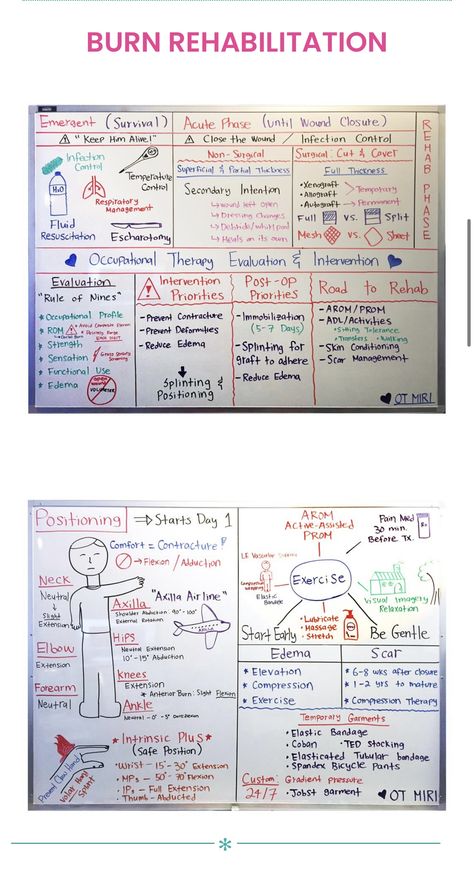 BURN REHABILITATION
Emergent (Survival)
⚠ "Keep Him Alive!"
Infection Control
H2O
Respiratory Management
Temperature Control
Fluid Resuscitation
Escharotomy
Acute Phase (Until Wound Closure)
⚠ Close the Wound / Infection Control
Non-Surgical
Superficial & Partial Thickness
Secondary Intention
↳ Wound left open
↳ Dressing Changes
↳ Debride/whirlpool
↳ Heals on its own
Surgical: Cut & Cover
Full Thickness
• Xenograft
• Allograft > Temporary
• Autograft → Permanent
Full VS. Split
Mesh VS. Sheet
REHAB PHASE
Occupational Therapy Evaluation & Intervention
Evaluation
"Rule of Nines"
* Occupational Profile
* ROM
* Strength
* Sensation
* Functional Use
* Edema
Intervention Priorities
- Prevent Contracture
- Prevent Deformities
- Reduce Edema
Splinting & Positioning
Post-OP Priorities
- Immobilization
(5-7 Days)
- Splinting for graft to adhere
- Reduce Edema
Road to Rehab
- AROM/PROM
- ADL/Activities
* Sitting Tolerance
* Transfers * Walking
- Skin Conditioning
- Scar Management
OT MIRI
Positioning ⇒ Starts Day 1
Comfort = Contracture!
→ Flexion / Adduction
Neck
Neutral
→ Slight Extension
Elbow
Extension
Forearm
Neutral
Axilla "Axilla Airline"
Shoulder Abduction 90°-100°
External Rotation
Hips
Neutral Extension
10°-15° Abduction
Knees
Extension
* Anterior Burn: Slight Flexion
Ankle
Neutral
* Intrinsic Plus *
(Safe Position)
• Wrist - 15-30° Extension
• MPs - 50°-70° Flexion
• IPs - Full Extension
• Thumb - Abducted
Prevent Claw Hand
Volar Hand Splint
AROM
Active-Assisted
PROM
Pain Med
30 min.
Before Tx.
Elastic Bandage
Exercise
Visual Imagery
Relaxation
Start Early
• Lubricate
• Massage
• Stretch
Be Gentle
Edema
* Elevation
* Compression
* Exercise
Scar
* 6-8 wks after closure
* 1-2 yrs to mature
* Compression Therapy
Temporary Garments
• Elastic Bandage
• Coban • TED stocking
• Elasticated Tubular bandage
• Spandex Bicycle Pants
Custom: Gradient pressure
24/7 • Jobst garment
OT MIRI